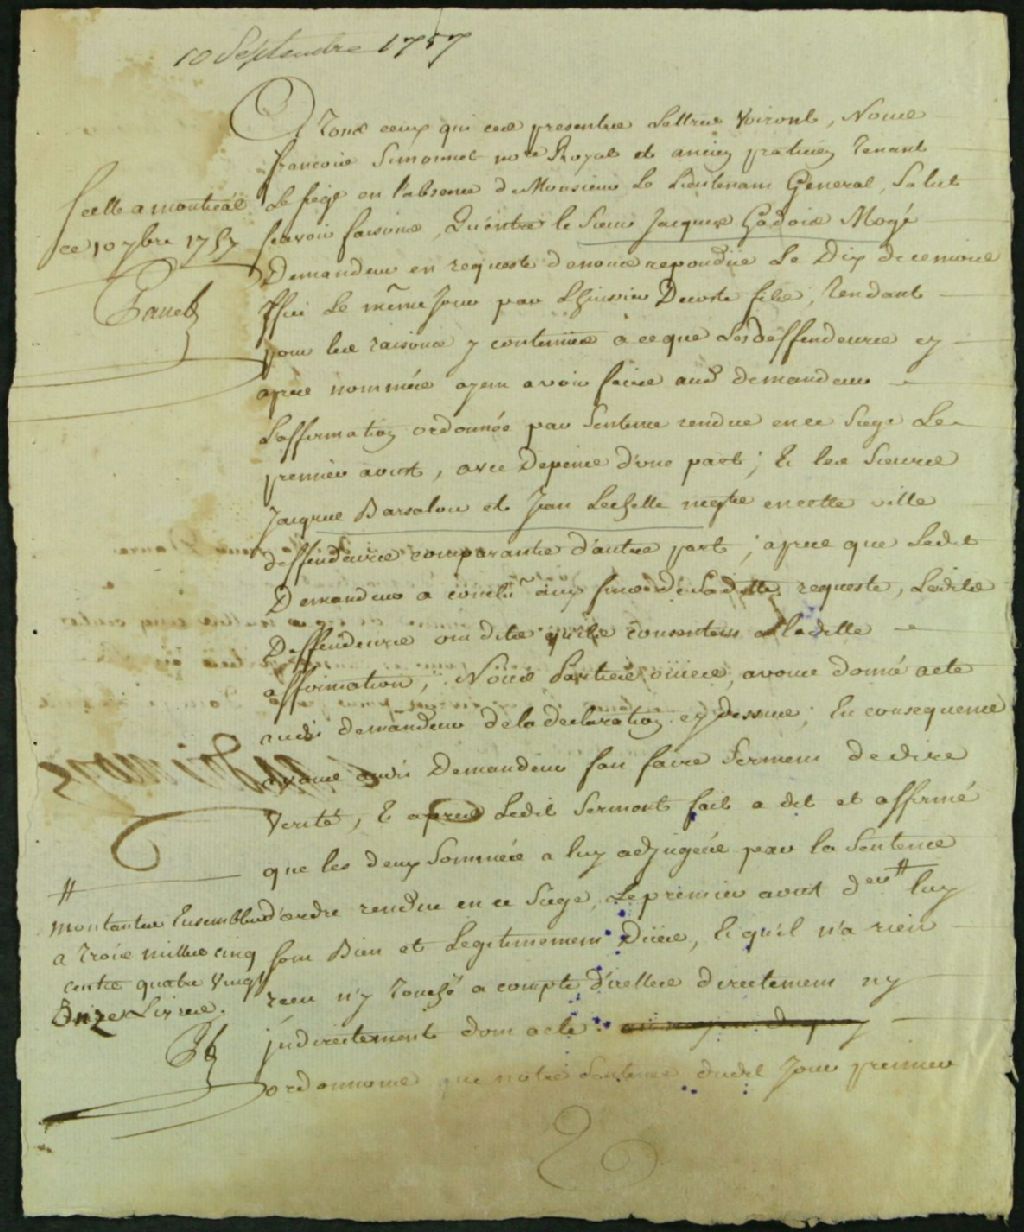 10 Septembre 1757
A Tous ceux qui ces presentes Lettres Verront, Nous
françois Simonnet no.re Royal et ancien praticien tenant
Le siege en l'absence de Monsieur Le Lieutenant General, Salut
scavoir faisons, Qu'entre le Sieur Jacques Gadois Mogé
Demandeur en requeste d'une repondüe Le Dix de ce mois
Le même Jour par L'huissier Decoste fils, tendant
pour les raisons y contenües a ce que Les deffendeurs cy
apres nommés ayent a voir faire aud. demandeur
L'affirmation ordonnée par Sentence rendue en ce Siege Le
premier aoust, avec Depens d'une part; Et les Sieurs
Jacques Barsalou et Jean Lechelle negts en cette ville
deffendeurs comparants d'autre part; apres que Ledit
Demandeur a conclu aux fins de Saditte requeste, Lesdits
Deffendeurs ont dit qu'ils consentent a Laditte
affirmation, Nous Parties ouies, avons donné acte
audit demandeur de la declaration cy dessus; En consequence
avons audit Demandeur fait faire serment de dire
Verité, Et apres Ledit Serment fait a dit et affirmé
que les deux Sommes a luy adjugées par la Sentence
d'ordre rendue en ce Siege, Le premier aoust dern.er # luy
sont Bien et Legitimement Dües, Et qu'il n'a rien
recu n'y touché a compte d'icelles directement ny
indirectement dont acte.
ordonnons que notre Sentence dudit Jour premier
Scellé a montreal
ce 10 7bre 1757
Panet
#
montantes Ensembles
a Trois milles cinq
cents quatre vingt
Onze Livres.